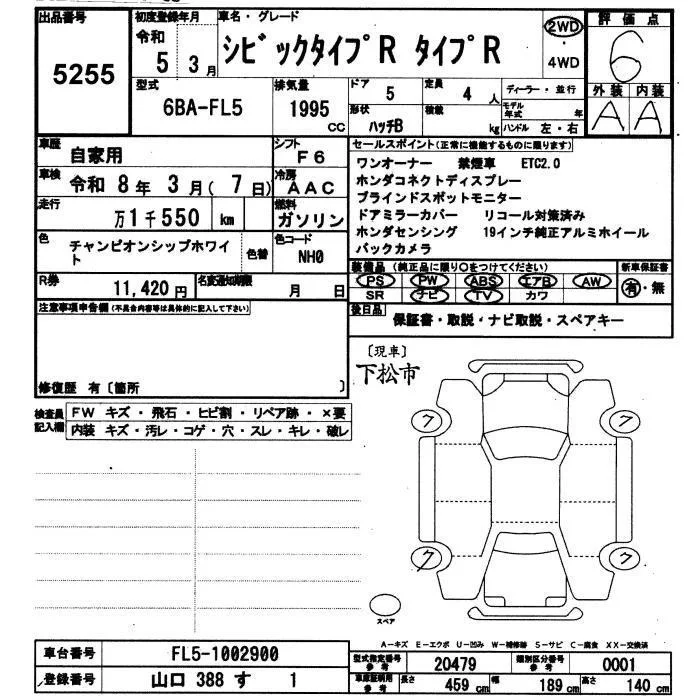 出品番号
5255
初度登録年月
令和
5 3 月
車名・グレード
シビックタイプR タイプR
2WD
・
4WD
評価点
6
外装 内装
A A
型式
6BA-FL5
排気量
1995
CC
ドア
5
定員
4 人
形状
ハッチB
積載
kg
ディーラー・並行
モデル年式 年
ハンドル 左・右
車歴
自家用
シフト
F6
車検
令和 8 年 3 月( 7 日)
冷房
AAC
走行
万1千550 km
燃料
ガソリン
色
チャンピオンシップホワイト
色替
色コード
NH0
R券
11,420 円
名変通知期限
月 日
セールスポイント(正常に機能するものに限ります)
ワンオーナー 禁煙車 ETC2.0
ホンダコネクトディスプレー
ブラインドスポットモニター
ドアミラーカバー リコール対策済み
ホンダセンシング 19インチ純正アルミホイール
バックカメラ
装備品 (純正品に限り○をつけてください)
PS PW ABS エアB AW
SR ナビ TV カワ
新車保証書
有・無
後日品
保証書・取説・ナビ取説・スペアキー
注意事項申告欄(不具合内容等は具体的に記入して下さい)
修復歴 有〔箇所 〕
検査員記入欄
FW キズ・飛石・ヒビ割・リペア跡・×要
内装 キズ・汚レ・コゲ・穴・スレ・キレ・破レ
〔現車〕
下松市
7 7
7 7
スペア
A-キズ E-エクボ U-凹み W-補修跡 S-サビ C-腐食 XX-交換済
車台番号
FL5-1002900
登録番号
山口 388 す 1
型式指定番号 参考
20479
類別区分番号 参考
0001
車庫証明用 参考
長さ 459 cm 幅 189 cm 高さ 140 cm